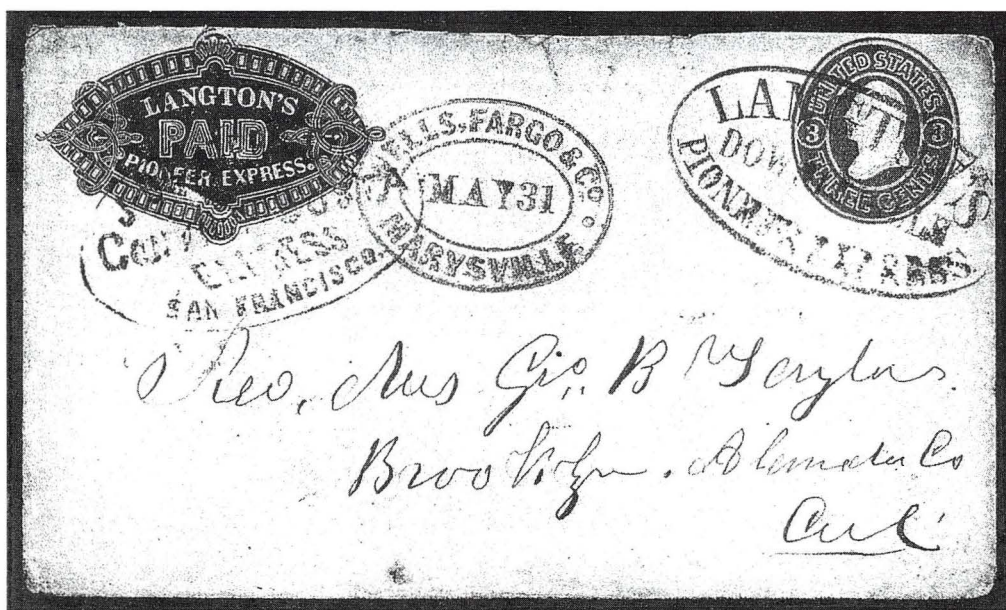 LANGTON'S
PAID
PIONEER EXPRESS.
EXPRESS
SAN FRANCISCO
WELLS, FARGO & CO.
MAY 31
MARYSVILLE
PIONEER EXPRESS
UNITED STATES
3 3
THREE CENTS
Geo. B Taylor
Brooklyn. Alameda Co
Cal